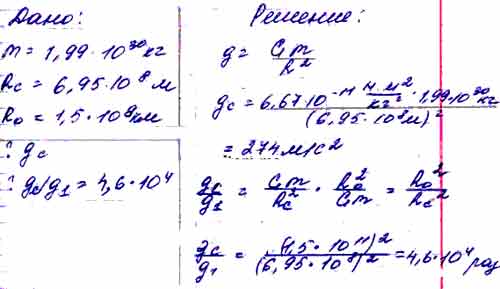 Дано:
m = 1,99·10^30 кг
Rc = 6,95·10^8 м
R0 = 1,5·10^8 км
: gc
: gc/g1 = 4,6·10^4
Решение:
g = Gm/R^2
gc = 6,67·10^-11 Н·м^2/кг^2 · 1,99·10^30 кг / (6,95·10^8 м)^2
= 274 м/с^2
gc/g1 = Gm/Rc^2 · R0^2/Gm = R0^2/Rc^2
gc/g1 = (1,5·10^11)^2/(6,95·10^8)^2 = 4,6·10^4 раз